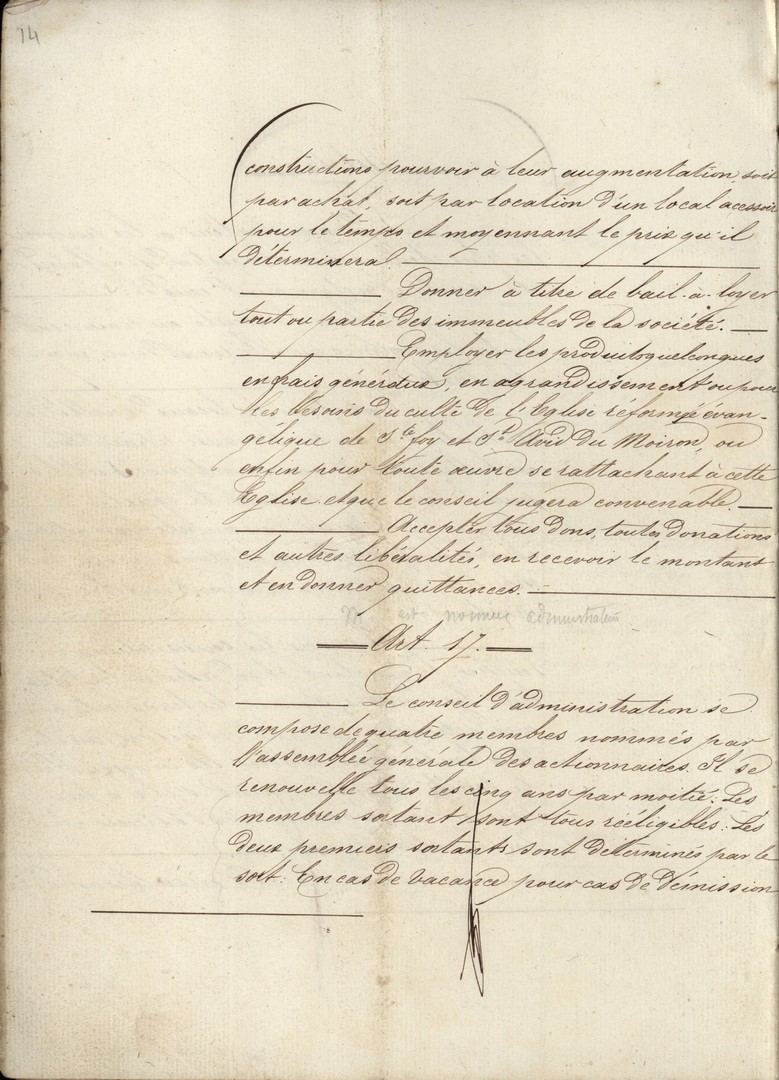 14
constructions pourvoir à leur augmentation, soit
par achat, soit par location d'un local accessoire
pour le temps et moyennant le prix qu'il
déterminera.
Donner à titre de bail à loyer
tout ou partie des immeubles de la société.
Employer les produits quelconques
en frais généraux, en agrandissement ou pour
les besoins du culte de l'Eglise réformée évan-
gélique de Ste foy et St Avid du Moiron, ou
enfin pour toute œuvre se rattachant à cette
Eglise et que le conseil jugera convenable.
Accepter tous dons, toutes donations
et autres libéralités, en recevoir le montant
et en donner quittances.
M est nommé administrateur
Art. 17.
Le conseil d'administration se
compose de quatre membres nommés par
l'assemblée générale des actionnaires. Il se
renouvelle tous les cinq ans par moitié. Les
membres sortant sont tous rééligibles. Les
deux premiers sortants sont déterminés par le
sort. En cas de vacance pour cas de démission